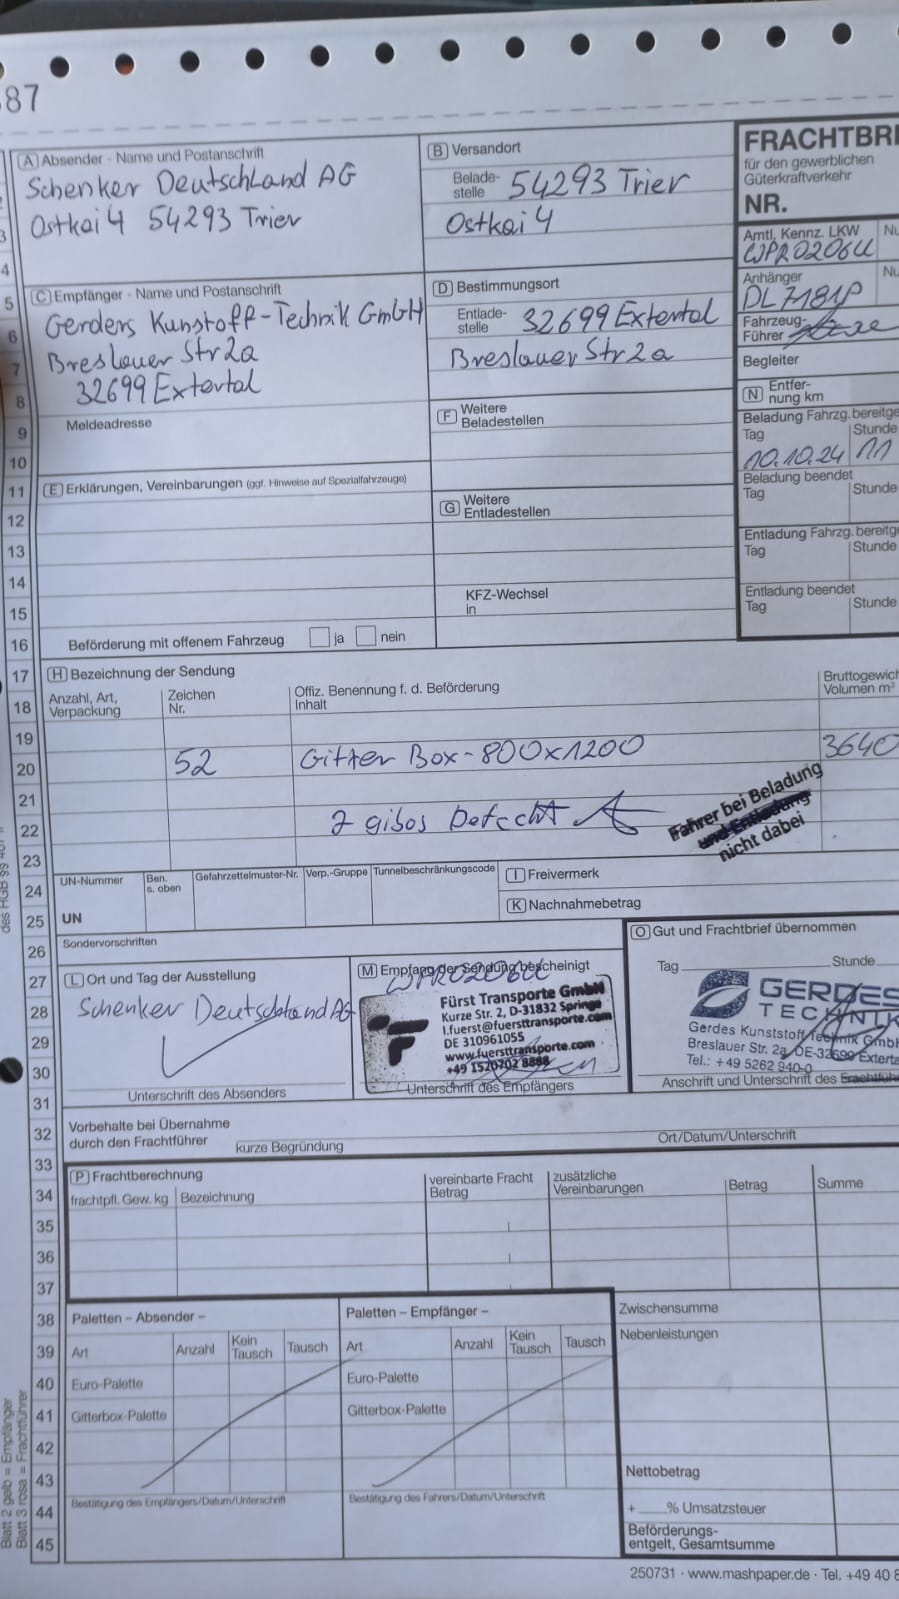 587
FRACHTBRI
für den gewerblichen
Güterkraftverkehr
NR.
A Absender - Name und Postanschrift
Schenker Deutschland AG
Ostkai 4 54293 Trier
B Versandort
Belade-
stelle 54293 Trier
Ostkai 4
Amtl. Kennz. LKW
WPR0206U
Anhänger
DL7181P
Fahrzeug-
Führer
Begleiter
C Empfänger - Name und Postanschrift
Gerders Kunstoff-Technik GmbH
Breslauer Str 2a
32699 Extertal
Meldeadresse
D Bestimmungsort
Entlade-
stelle 32699 Extertal
Breslauer Str 2a
N Entfer-
nung km
Beladung Fahrzg. bereitge
Tag Stunde
10.10.24 11
Beladung beendet
Tag Stunde
Entladung Fahrzg. bereitge
Tag Stunde
Entladung beendet
Tag Stunde
F Weitere
Beladestellen
E Erklärungen, Vereinbarungen (ggf. Hinweise auf Spezialfahrzeuge)
G Weitere
Entladestellen
KFZ-Wechsel
in
Beförderung mit offenem Fahrzeug ja nein
H Bezeichnung der Sendung
Anzahl, Art,
Verpackung
Zeichen
Nr.
Offiz. Benennung f. d. Beförderung
Inhalt
Bruttogewich
Volumen m³
52 Gitter Box-800x1200 3640
2 gibos Defecht
Fahrer bei Beladung
und Entladung
nicht dabei
UN-Nummer
UN
Ben.
s. oben
Gefahrzettelmuster-Nr.
Verp.-Gruppe
Tunnelbeschränkungscode
I Freivermerk
K Nachnahmebetrag
Sondervorschriften
L Ort und Tag der Ausstellung
Schenker Deutschland AG
Unterschrift des Absenders
M Empfang der Sendung bescheinigt
WPR0206U
Fürst Transporte GmbH
Kurze Str. 2, D-31832 Springe
l.fuerst@fuersttransporte.com
DE 310961055
www.fuersttransporte.com
+49 1520702 8888
Unterschrift des Empfängers
O Gut und Frachtbrief übernommen
Tag Stunde
GERDES
TECHNIK
Gerdes Kunststoff-Technik GmbH
Breslauer Str. 2a, DE-32699 Exterta
Tel.: +49 5262 940-0
Anschrift und Unterschrift des Frachtführ
Vorbehalte bei Übernahme
durch den Frachtführer
kurze Begründung
Ort/Datum/Unterschrift
P Frachtberechnung
frachtpfl. Gew. kg
Bezeichnung
vereinbarte Fracht
Betrag
zusätzliche
Vereinbarungen
Betrag
Summe
Paletten – Absender –
Art Anzahl Kein Tausch Tausch
Euro-Palette
Gitterbox-Palette
Bestätigung des Empfängers/Datum/Unterschrift
Paletten – Empfänger –
Art Anzahl Kein Tausch Tausch
Euro-Palette
Gitterbox-Palette
Bestätigung des Fahrers/Datum/Unterschrift
Zwischensumme
Nebenleistungen
Nettobetrag
+ % Umsatzsteuer
Beförderungs-
entgelt, Gesamtsumme
Blatt 2 gelb = Empfänger
Blatt 3 rosa = Frachtführer
250731 · www.mashpaper.de · Tel. +49 40 8